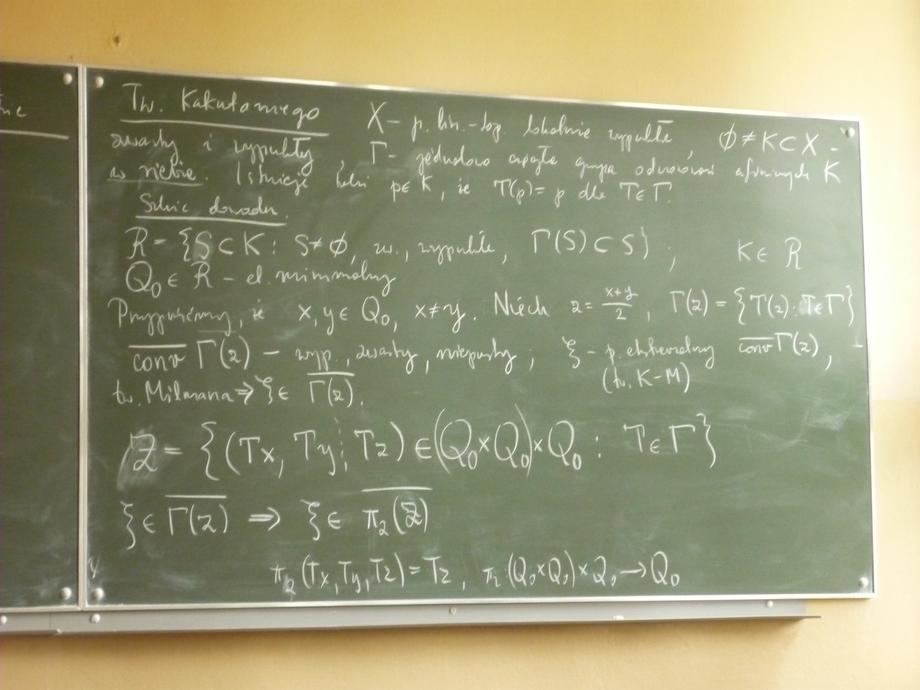 Tw. Kakutaniego X - p. lin.-top. lokalnie wypukła, ∅ ≠ K ⊂ X -
zwarty i wypukły, Γ - jednakowo ciągła grupa odwzorowań afinicznych K
w siebie. Istnieje p ∈ K, że T(p) = p dla T ∈ Γ.
Szkic dowodu.
R = {S ⊂ K : S ≠ ∅, zw., wypukłe, Γ(S) ⊂ S} ; K ∈ R
Q₀ ∈ R - el. minimalny
Przypuśćmy, że x, y ∈ Q₀, x ≠ y. Niech z = \frac{x+y}{2}, Γ(z) = {T(z) : T ∈ Γ}
\overline{conv} Γ(z) - wyp., zwarty, niepusty ; ξ - p. ekstremalny \overline{conv} Γ(z),
(tw. K-M)
tw. Milmana ⇒ ξ ∈ \overline{Γ(z)}.
Z = {(Tx, Ty; Tz) ∈ (Q₀×Q₀)×Q₀ : T ∈ Γ}
ξ ∈ \overline{Γ(z)} ⇒ ξ ∈ \overline{π₂(Z)}
π₂(Tx, Ty, Tz) = Tz, π₂ : (Q₀×Q₀)×Q₀ → Q₀